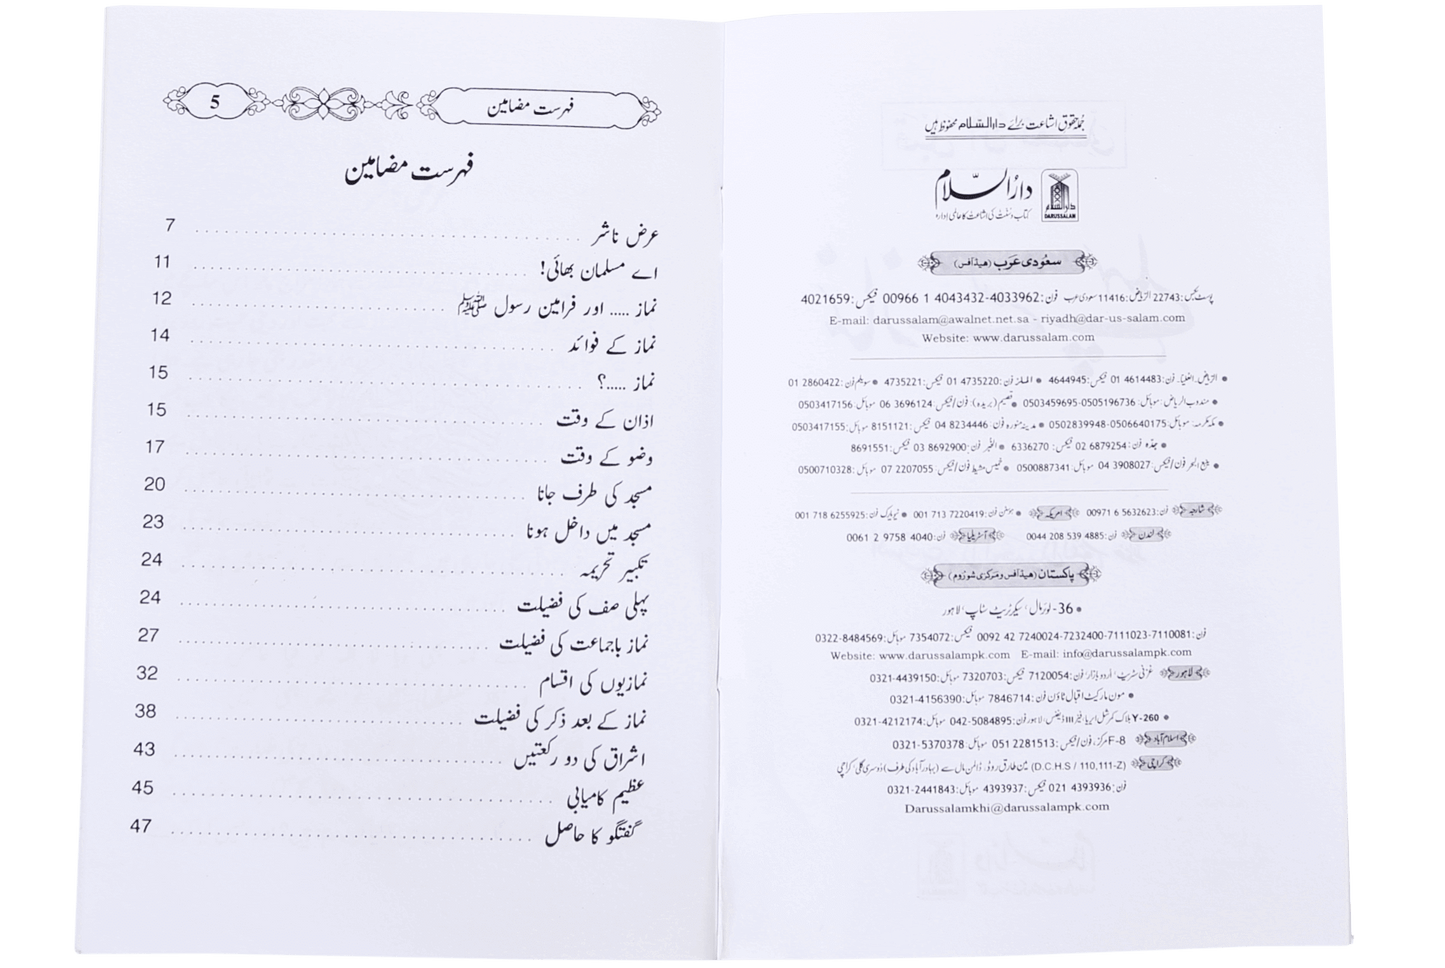 جملہ حقوق اشاعت برائے دارالسلام محفوظ ہیں
دارالسلام
DARUSSALAM
کتاب و سنت کی اشاعت کا عالمی ادارہ
سعودی عرب (ہیڈ آفس)
پوسٹ بکس: 22743 الریاض: 11416 سعودی عرب فون: 00966 1 4043432-4033962 فیکس: 4021659
E-mail: darussalam@awalnet.net.sa - riyadh@dar-us-salam.com
Website: www.darussalam.com
● الریاض۔ العلیا۔ فون: 01 4614483 فیکس: 4644945 ● الملز فون: 01 4735220 فیکس: 4735221 ● سویلم فون: 01 2860422
● مندوب الریاض: موبائل: 0503459695-0505196736 ● قصیم (بریدہ): فون/فیکس: 06 3696124 موبائل: 0503417156
● مکہ مکرمہ: موبائل: 0502839948-0506640175 ● مدینہ منورہ فون: 04 8234446 فیکس: 8151121 موبائل: 0503417155
● جدہ فون: 02 6879254 فیکس: 6336270 ● الخبر فون: 03 8692900 فیکس: 8691551
● ینبع البحر فون/فیکس: 04 3908027 موبائل: 0500887341 ● خمیس مشیط فون/فیکس: 07 2207055 موبائل: 0500710328
شارجہ فون: 00971 6 5632623 امریکہ ● ہوسٹن فون: 001 713 7220419 ● نیویارک فون: 001 718 6255925
لندن فون: 0044 208 539 4885 آسٹریلیا فون: 0061 2 9758 4040
پاکستان (ہیڈ آفس و مرکزی شوروم)
● 36- لوئر مال، سیکرٹریٹ سٹاپ، لاہور
فون: 0092 42 7240024-7232400-7111023-7110081 فیکس: 7354072 موبائل: 0322-8484569
Website: www.darussalampk.com E-mail: info@darussalampk.com
لاہور غزنی سٹریٹ، اردو بازار، فون: 7120054 فیکس: 7320703 موبائل: 0321-4439150
● مون مارکیٹ اقبال ٹاؤن فون: 7846714 موبائل: 0321-4156390
● Y-260 بلاک کمرشل ایریا، فیز III ڈیفنس، لاہور فون: 042-5084895 موبائل: 0321-4212174
اسلام آباد F-8 مرکز، فون/فیکس: 051 2281513 موبائل: 0321-5370378
کراچی (D.C.H.S / 110,111-Z) مین طارق روڈ، ڈالمن مال سے (بہادر آباد کی طرف) دوسری گلی کراچی
فون: 021 4393936 فیکس: 4393937 موبائل: 0321-2441843
Darussalamkhi@darussalampk.com
فہرست مضامین 5
فہرست مضامین
عرض ناشر 7
اے مسلمان بھائی! 11
نماز ..... اور فرامین رسول ﷺ 12
نماز کے فوائد 14
نماز .....؟ 15
اذان کے وقت 15
وضو کے وقت 17
مسجد کی طرف جانا 20
مسجد میں داخل ہونا 23
تکبیر تحریمہ 24
پہلی صف کی فضیلت 24
نماز باجماعت کی فضیلت 27
نمازیوں کی اقسام 32
نماز کے بعد ذکر کی فضیلت 38
اشراق کی دو رکعتیں 43
عظیم کامیابی 45
گفتگو کا حاصل 47